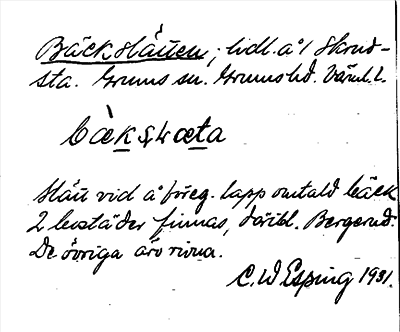 Bäckslätten, lidl. å 1 Skruv-
sta. Grums sn. Grums hd. Värml. l.
bæksłæta
Slätt vid å föreg. lapp omtald bäck
2 bostäder finnas, däribl. Bergerud.
De övriga äro rivna.
C. W Esping 1931.